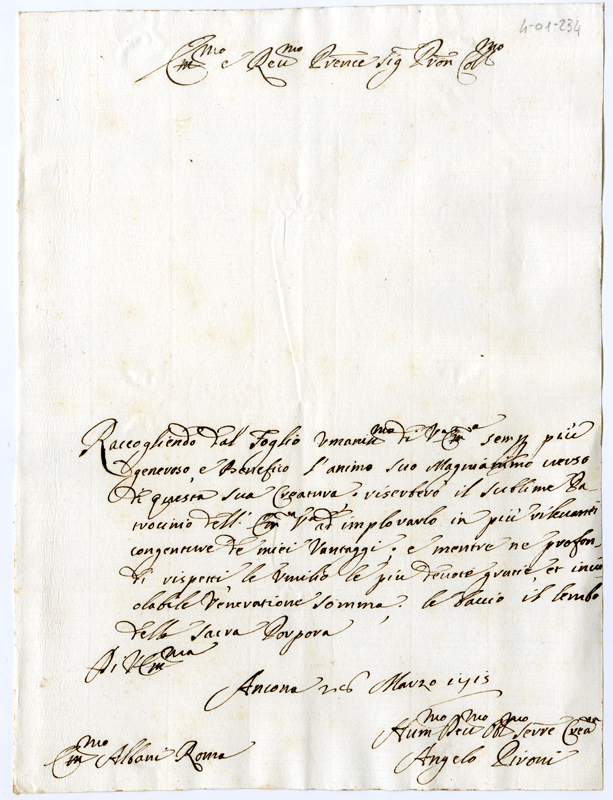 4-01-234
Em.mo e Reu.mo Prence Sig Pron Coll.mo
Raccogliendo dal Foglio Vmaniss.mo di V. Em.za sempe più
generoso, e Benefico l'animo suo Magnanimo uerso
di questa sua Creatura; riserberò il sublime Pa
trocinio dell' Em.za V.ra ad implorarlo in più rileuanti
congenture de miei Vantaggi; e mentre ne profon,
di rispetti le Vmilio le più deuote gratie, et inuio
labile Veneratione somma, le baccio il lembo
della Sacra Porpora
Di V. Em.za
Ancona 26 Marzo 1715
Hum.mo Deu.mo Obl.mo Serre Crea.ra
Em.mo Albani Roma
Angelo Pironi